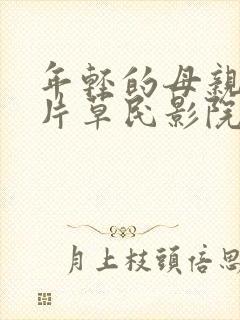 年轻的母亲
片草民影院
月上枝頭倍思